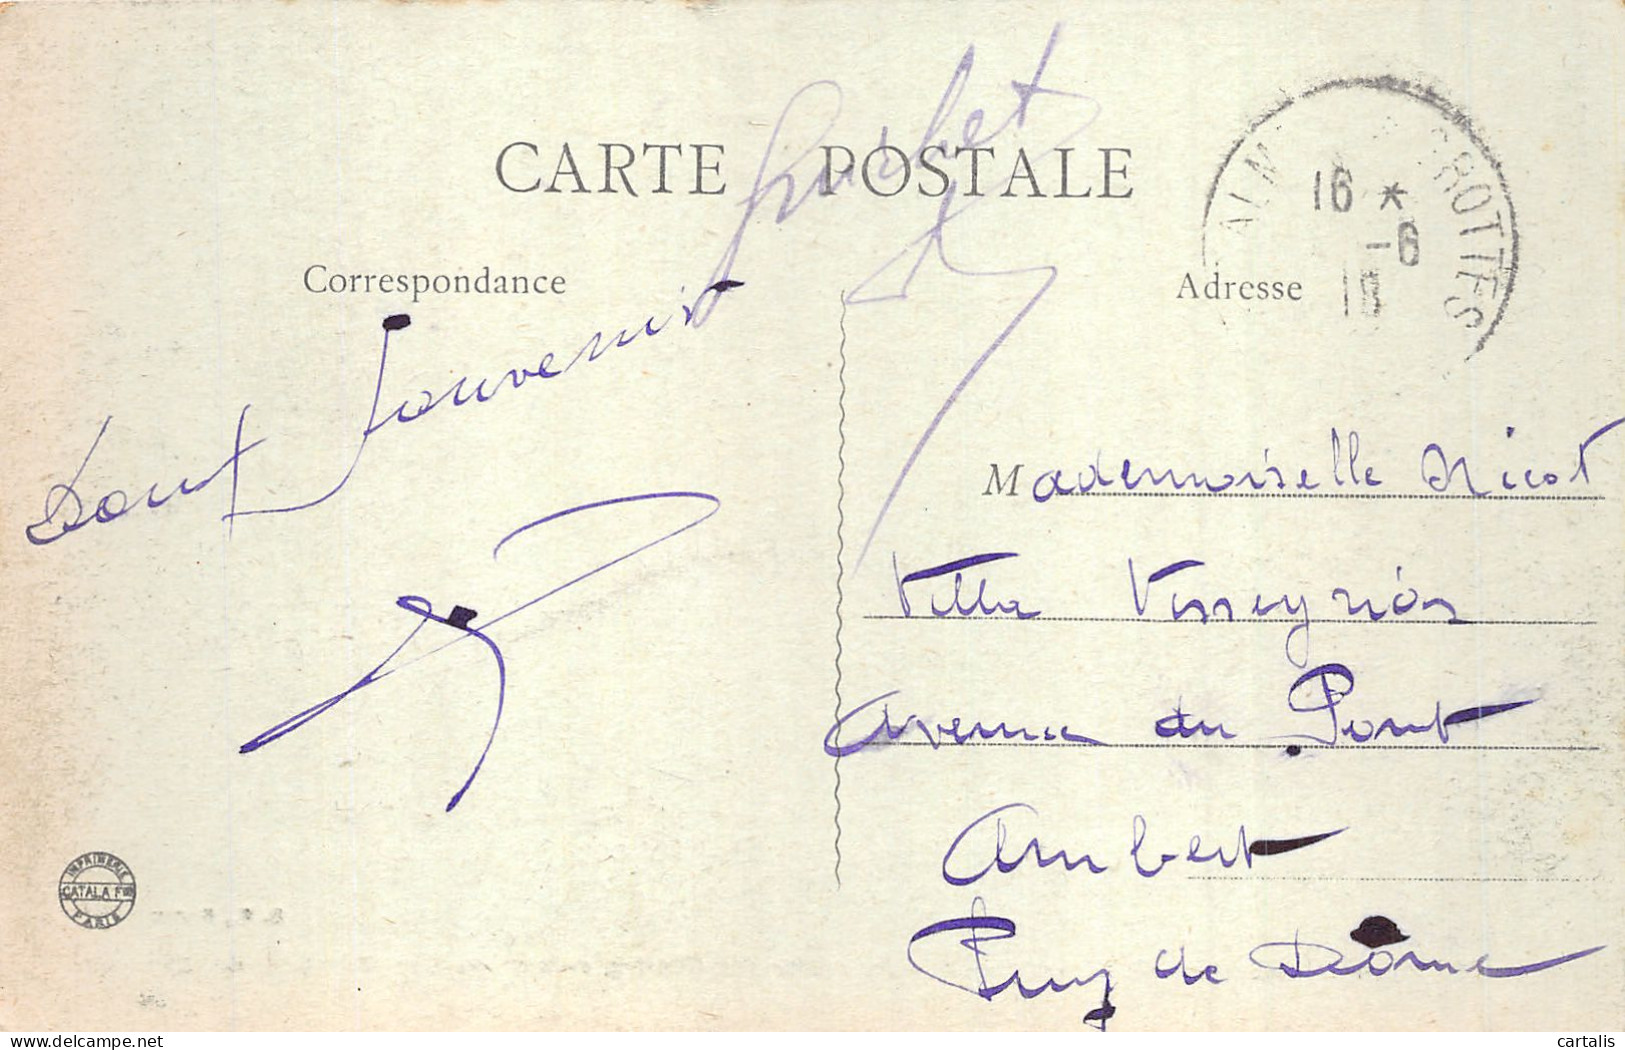 CARTE POSTALE
Correspondance
Adresse
16 *
-6
ROTTES
souvenir
Mademoiselle Nicot
Villa
Avenue du Pont
Ambert
Puy de Dôme
IMPRIMERIE
CATALA Fres
PARIS
delcampe.net
cartalis